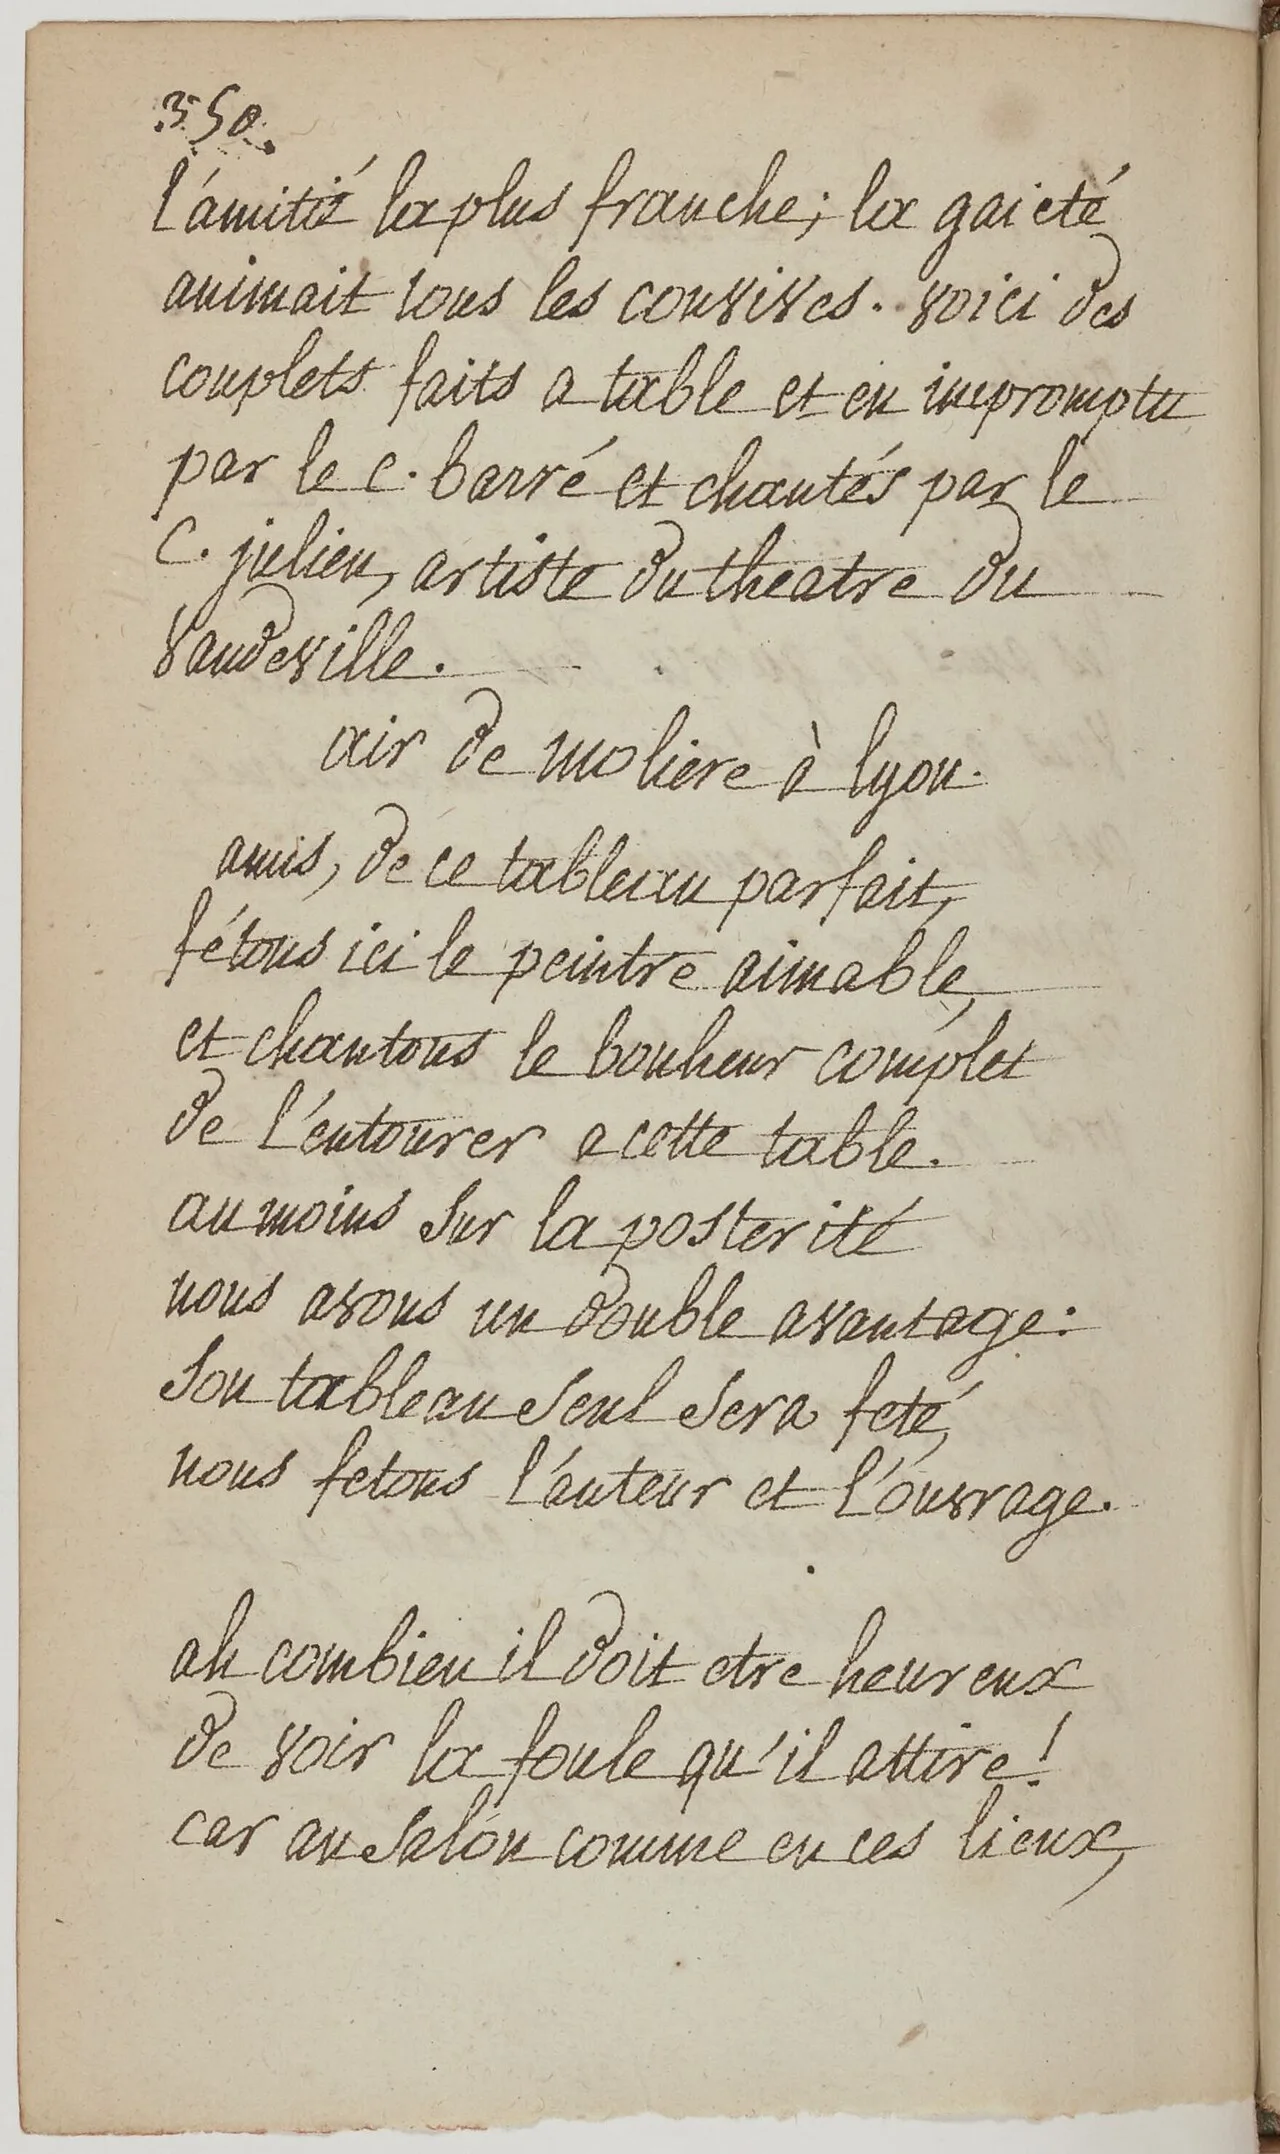 350.
l'amitié la plus franche; la gaieté
animait tous les convives. voici des
couplets faits a table et en impromptu
par le c. barré et chantés par le
C. julien, artiste du theatre du
vaudeville.
air de moliere à lyon.
amis, de ce tableau parfait,
fétons ici le peintre aimable,
et chantons le bonheur complet
de l'entourer a cette table.
au moins sur la posterité
nous avons un double avantage:
son tableau seul sera feté,
nous fetons l'auteur et l'ouvrage.
ah combien il doit etre heureux
de voir la foule qu'il attire!
car au salon comme en ces lieux,